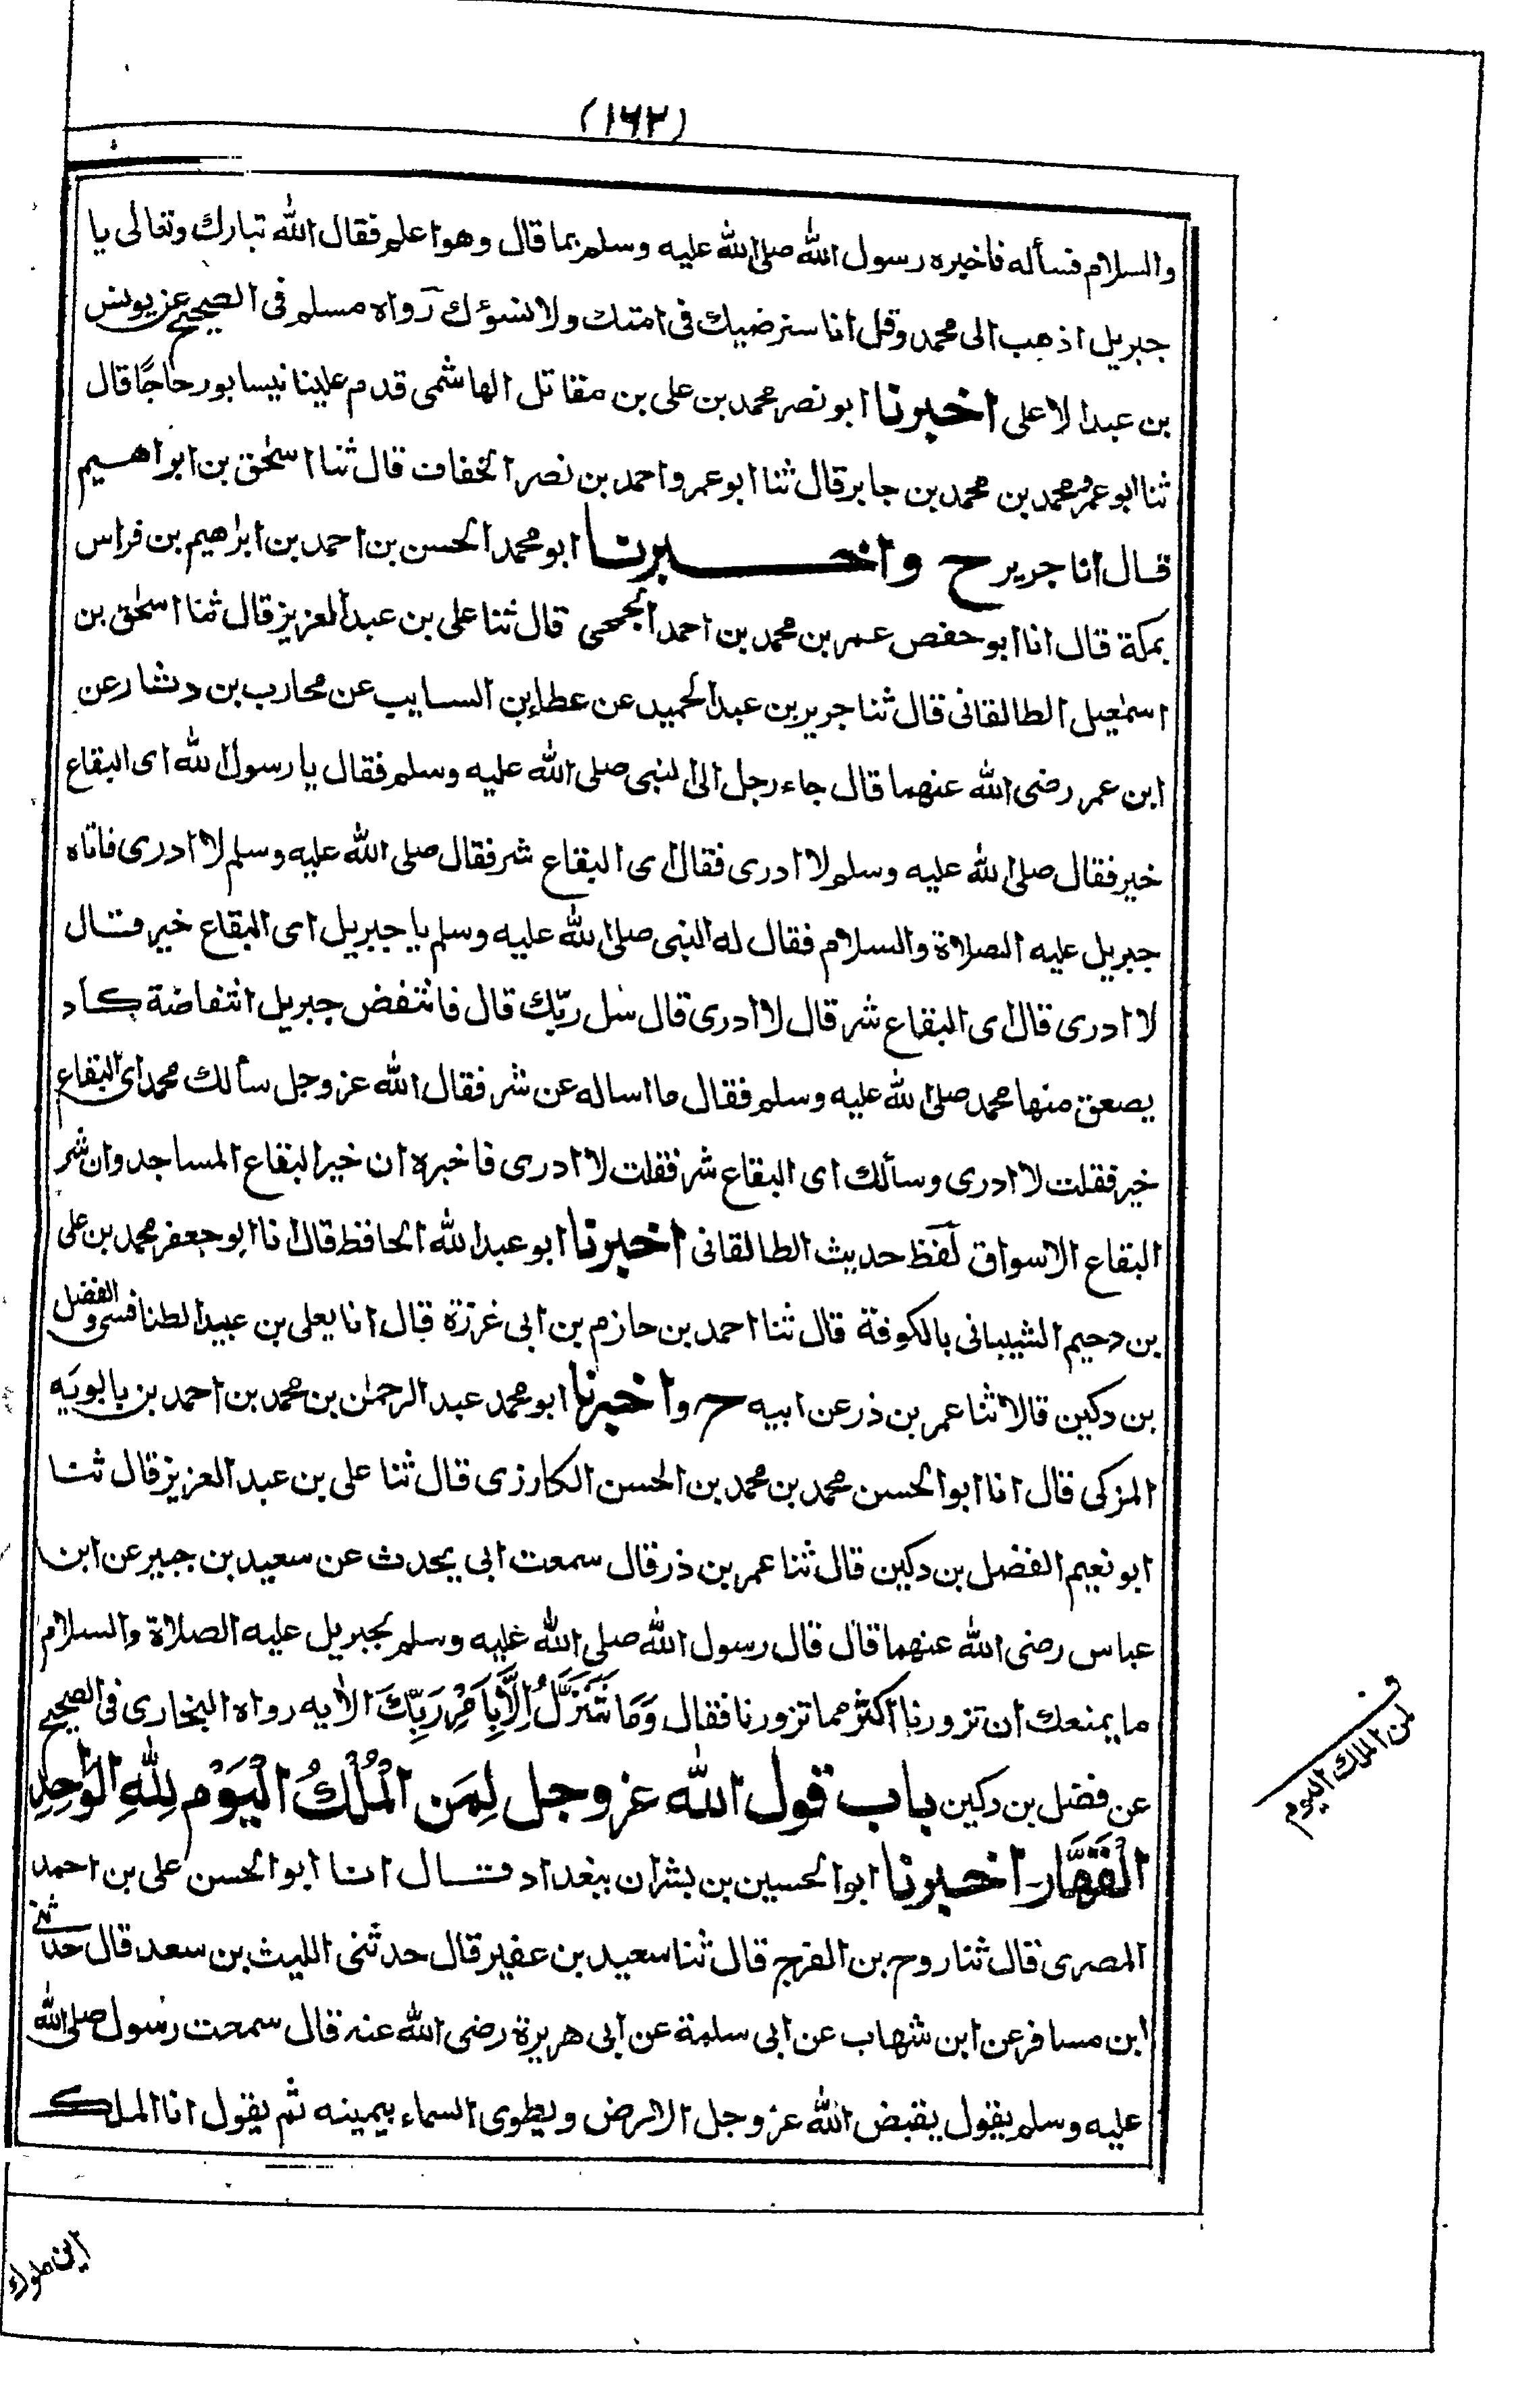 (۱۶۲)
والسلام فسأله فاخبره رسول الله صلى الله عليه وسلم بما قال وهو اعلم فقال الله تبارك وتعالى يا
جبريل اذهب الى محمد وقل انا سنرضيك فى امتك ولا نسؤك رواه مسلم فى الصحيح عن يونس
بن عبد الاعلى اخبرنا ابو نصر محمد بن على بن مقاتل الهاشمى قدم علينا نيسابور حاجًا قال
ثنا ابو عمرو محمد بن محمد بن جابر قال ثنا ابو عمرو احمد بن نصر الخفاف قال ثنا اسحٰق بن ابراهيم
قال انا جرير ح واخبرنا ابو محمد الحسن بن احمد بن ابراهيم بن فراس
بمكة قال انا ابو حفص عمر بن محمد بن احمد الجمحى قال ثنا على بن عبد العزيز قال ثنا اسحٰق بن
اسمٰعيل الطالقانى قال ثنا جرير بن عبد الحميد عن عطاء بن السايب عن محارب بن دثار عن
ابن عمر رضى الله عنهما قال جاء رجل الى النبى صلى الله عليه وسلم فقال يا رسول الله اى البقاع
خير فقال صلى الله عليه وسلم لا ادرى فقال اى البقاع شر فقال صلى الله عليه وسلم لا ادرى فاتاه
جبريل عليه الصلاة والسلام فقال له النبى صلى الله عليه وسلم يا جبريل اى البقاع خير قال
لا ادرى قال اى البقاع شر قال لا ادرى قال سل ربّك قال فانتفض جبريل انتفاضة كاد
يصعق منها محمد صلى الله عليه وسلم فقال ما اساله عن شر فقال الله عز وجل سألك محمد اى البقاع
خير فقلت لا ادرى وسألك اى البقاع شر فقلت لا ادرى فاخبره ان خير البقاع المساجد وان شر
البقاع الاسواق لفظ حديث الطالقانى اخبرنا ابو عبد الله الحافظ قال انا ابو جعفر محمد بن على
بن دحيم الشيبانى بالكوفة قال ثنا احمد بن حازم بن ابى غرزة قال انا يعلى بن عبيد الطنافسى والفضل
بن دكين قالا ثنا عمر بن ذر عن ابيه ح واخبرنا ابو محمد عبد الرحمٰن بن محمد بن احمد بن بالويه
المزكى قال انا ابو الحسن محمد بن محمد بن الحسن الكارزى قال ثنا على بن عبد العزيز قال ثنا
ابو نعيم الفضل بن دكين قال ثنا عمر بن ذر قال سمعت ابى يحدث عن سعيد بن جبير عن ابن
عباس رضى الله عنهما قال قال رسول الله صلى الله عليه وسلم لجبريل عليه الصلاة والسلام
ما يمنعك ان تزورنا اكثر مما تزورنا فقال وَمَا نَتَنَزَّلُ اِلَّا بِاَمْرِ رَبِّكَ الاٰيه رواه البخارى فى الصحيح
عن فضل بن دكين باب قول الله عز وجل لِمَن الْمُلْكُ الْيَوْم لِلّٰهِ الْوَاحِدِ
الْقَهَّار اخبرنا ابو الحسين بن بشران ببغداد قال انا ابو الحسن على بن احمد
المصرى قال ثنا روح بن الفرج قال ثنا سعيد بن عفير قال حدثنى الليث بن سعد قال حدثنى
ابن مسافر عن ابن شهاب عن ابى سلمة عن ابى هريرة رضى الله عنه قال سمعت رسول صلى الله
عليه وسلم يقول يقبض الله عز وجل الارض ويطوى السماء بيمينه ثم يقول انا الملك
لمن الملك اليوم
اين ملوك